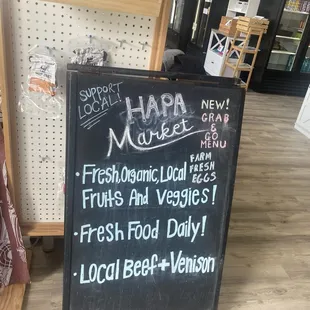 SUPPORT
LOCAL!
HAPA
Market
NEW!
GRAB
& GO
MENU
• Fresh, Organic, Local
FARM
FRESH
EGGS
Fruits And Veggies!
• Fresh Food Daily!
• Local Beef + Venison